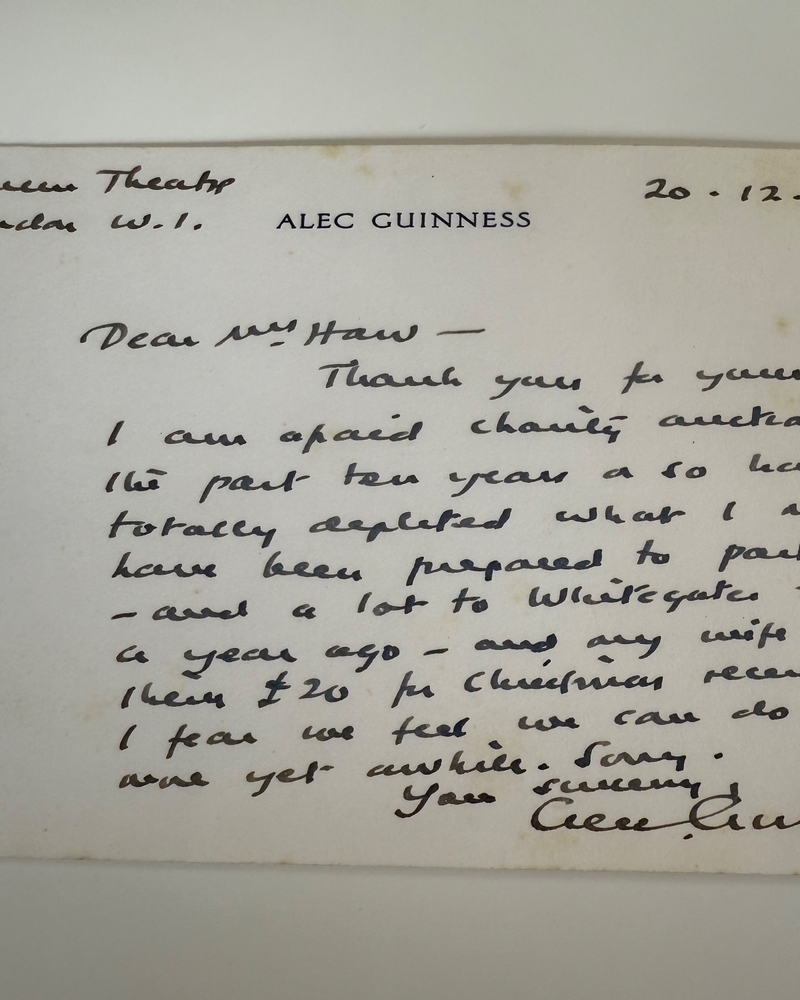 Theatre
W.1.
20.12.
ALEC GUINNESS
Dear Mrs Haw —
Thank you for your
I am afraid charity aucti
The past ten years or so ha
totally depleted what I
have been prepared to part
– and a lot to Whitegates
a year ago – and my wife
them £20 for Christmas recen
I fear we feel we can do
more yet awhile. Sorry.
Yours sincerely,
Alec Guin